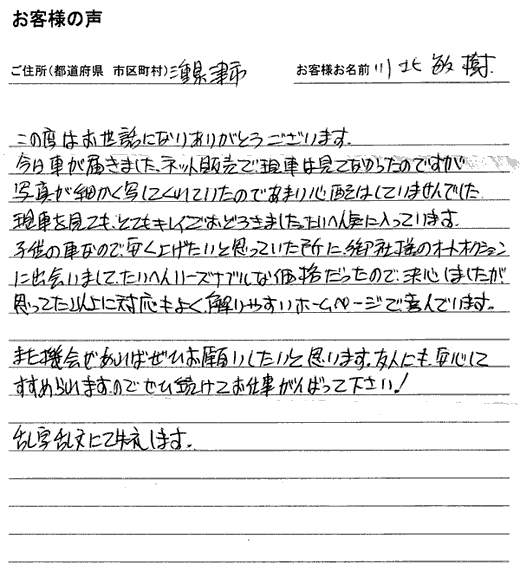 お客様の声
ご住所(都道府県 市区町村) 三重県津市 お客様お名前 川北敏樹
この度はお世話になりありがとうございます。
今日車が届きました。ネット販売で現車は見てなかったのですが
写真が細かく写してくれていたのであまり心配はしていませんでした
現車を見ても、とてもキレイでおどろきました。たいへん気に入っています。
子供の車なので、安く上げたいと思っていた所に、御社様のオートオークション
に出会いまして、たいへんリーズナブルな価格だったので、決心しましたが
思ってた以上に対応もよく、解りやすいホームページで喜んでいます。
また機会があればぜひお願いしたいと思います。友人にも、安心して
すすめられますのでぜひ続けてお仕事がんばって下さい！
乱字乱文にて失礼します。